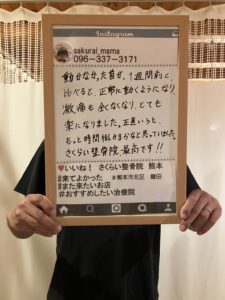 Instagram
sakurai_mama
096-337-3171
動かなかった首が、1週間前と
比べると、正常に動くようになり
激痛も全くなくなり、とても
楽になりました。正直いうと、
もっと時間掛かるかなと思っていました。
さくらい整骨院最高です!!
いいね! さくらい整骨院 熊本
#来てよかった #熊本市北区 龍田
#また来たいお店
#おすすめしたい治療院